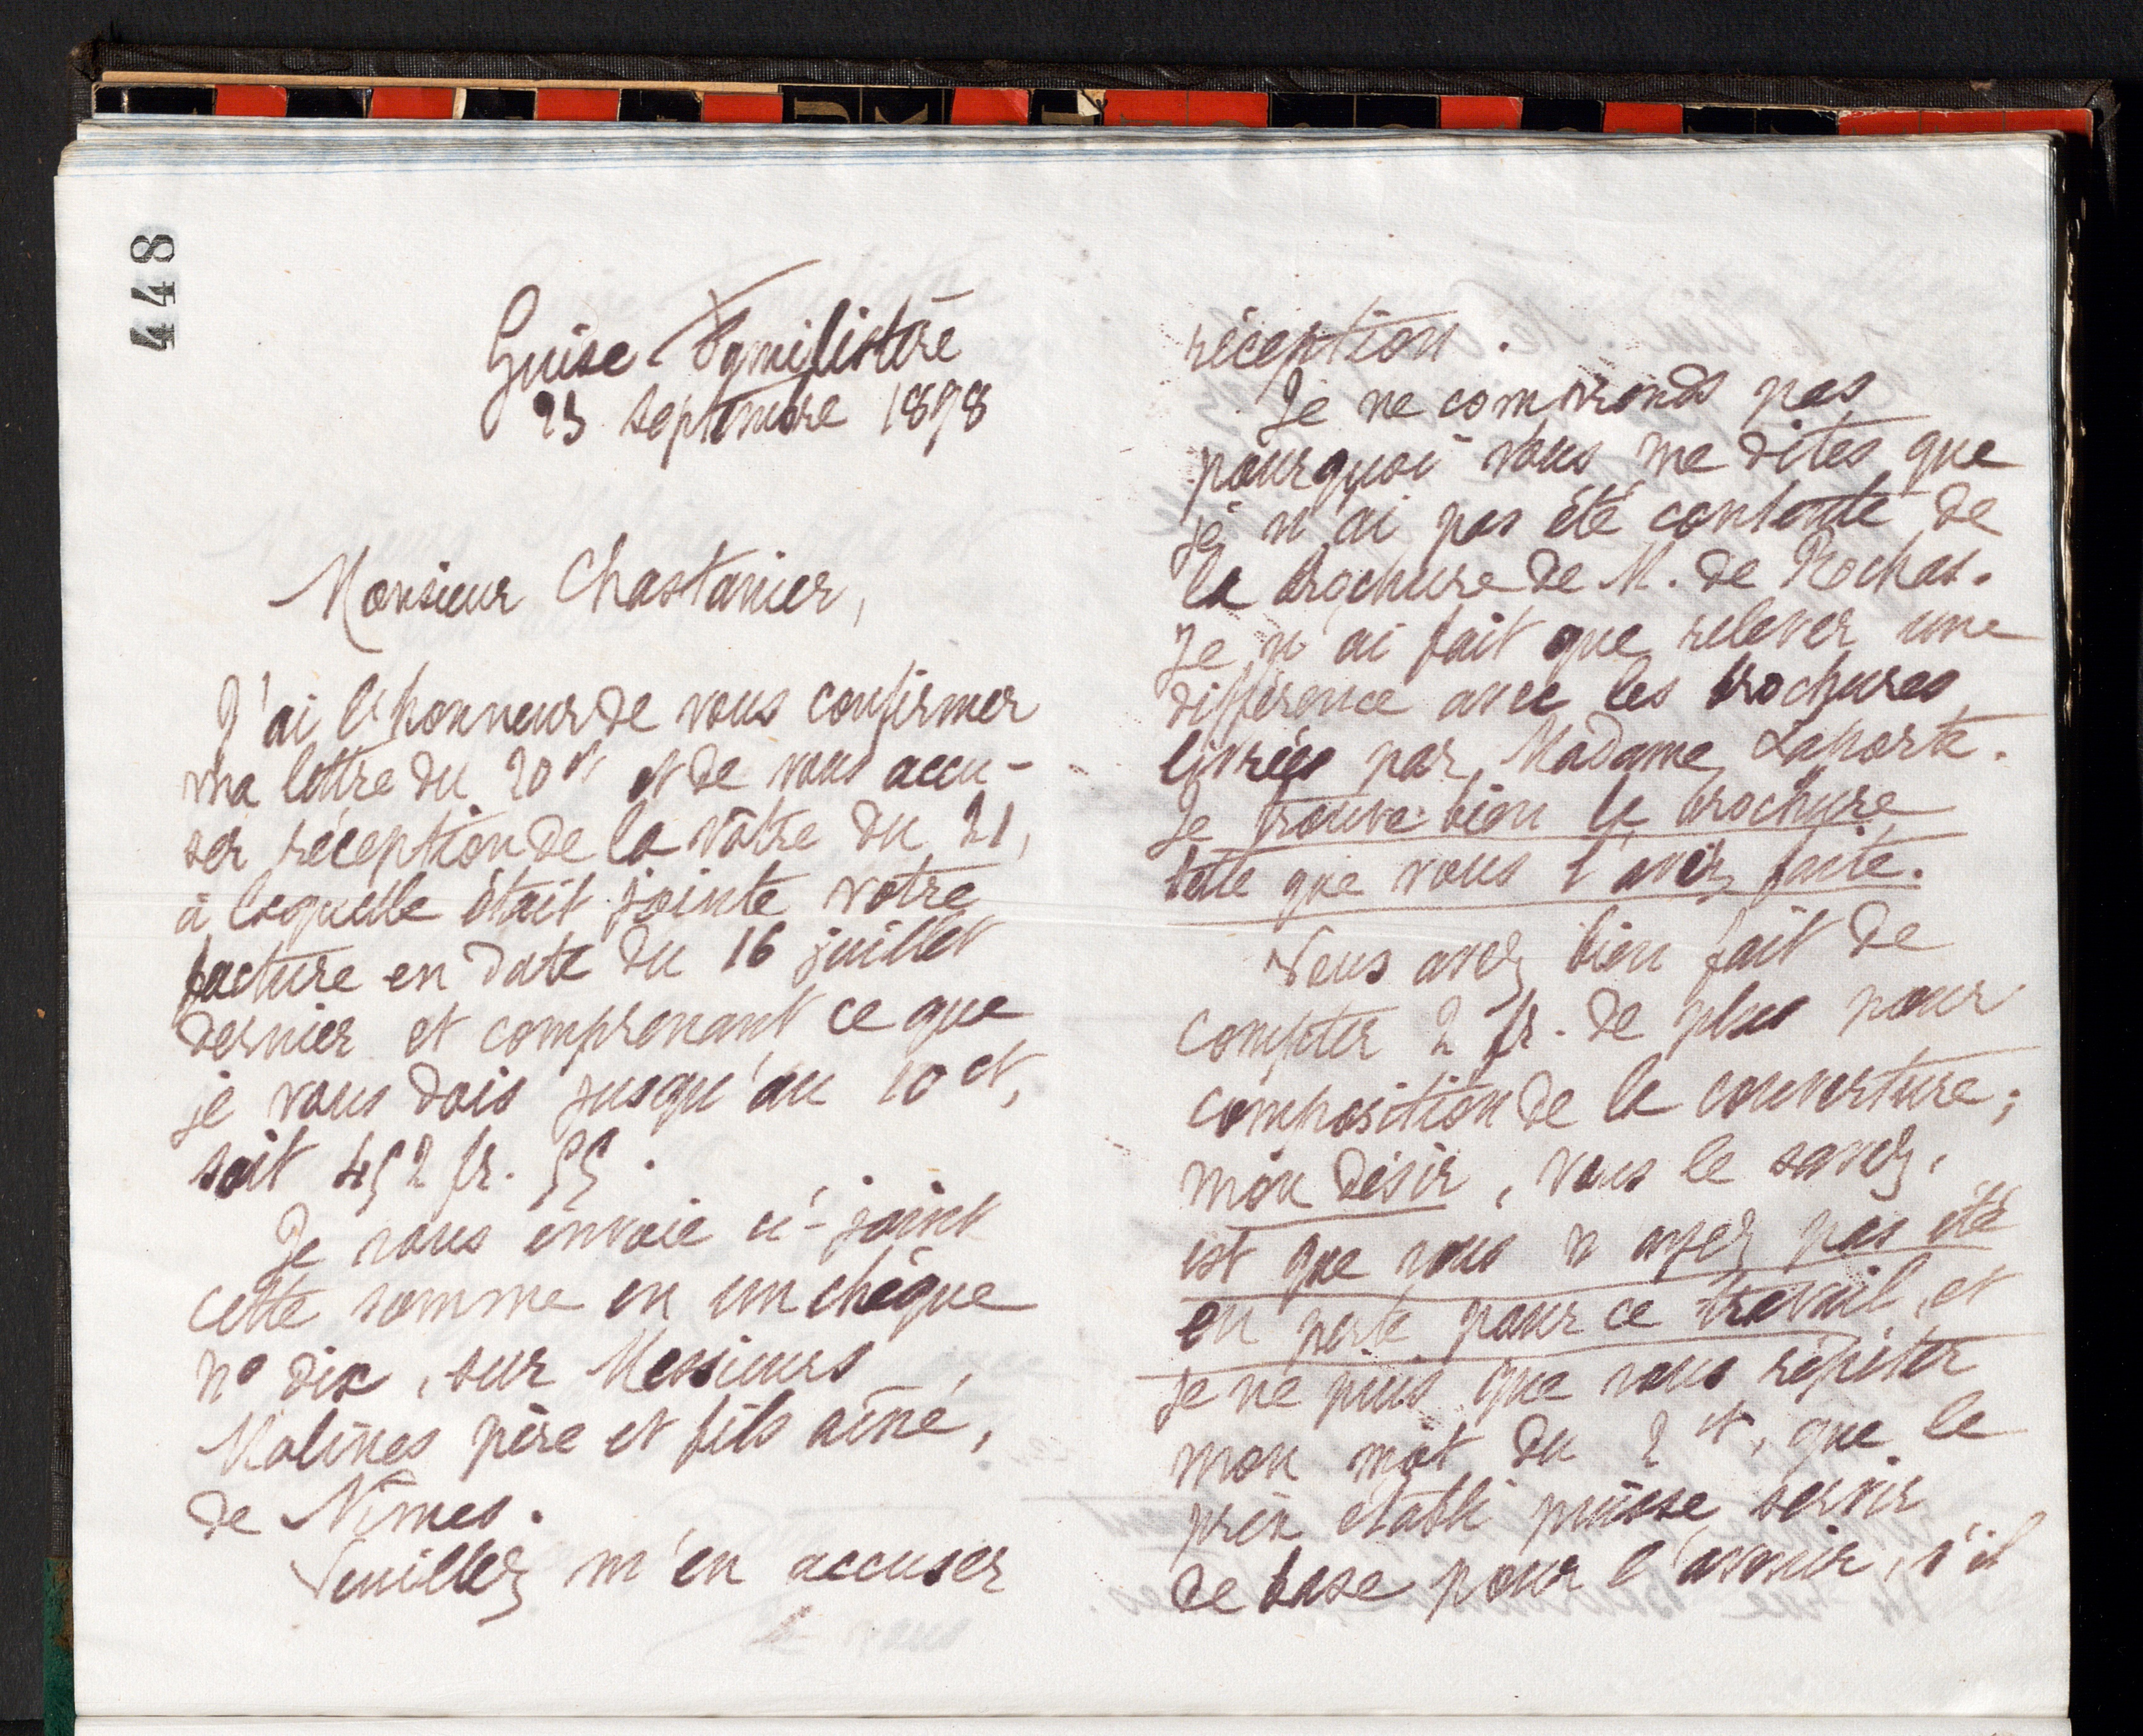 448
Guise Familistère
23 septembre 1898
Monsieur Chastanier,
J'ai l'honneur de vous confirmer
ma lettre du 20 ct et de vous accu-
ser réception de la vôtre du 21,
à laquelle était jointe votre
facture en date du 16 juillet
dernier et comprenant ce que
je vous dois jusqu'au 10 ct,
soit 452 fr. 55.
Je vous envoie ci-joint
cette somme en un chèque
no dix, sur Messieurs
Molines père et fils aîné,
de Nîmes.
Veuillez m'en accuser
réception.
Je ne comprends pas
pourquoi vous me dites que
je n'ai pas été contente de
la brochure de M. de Rochas.
Je n'ai fait que relever une
différence avec les brochures
livrées par Madame Laporte.
Je trouve bien la brochure
telle que vous l'avez faite.
Vous avez bien fait de
compter 2 fr. de plus pour
composition de la couverture;
mon désir, vous le savez,
est que vous n'ayez pas été
en perte pour ce travail, et
je ne puis que vous répéter
mon mot du 2 ct, que le
prix établi puisse servir
de base pour l'avenir, s'il